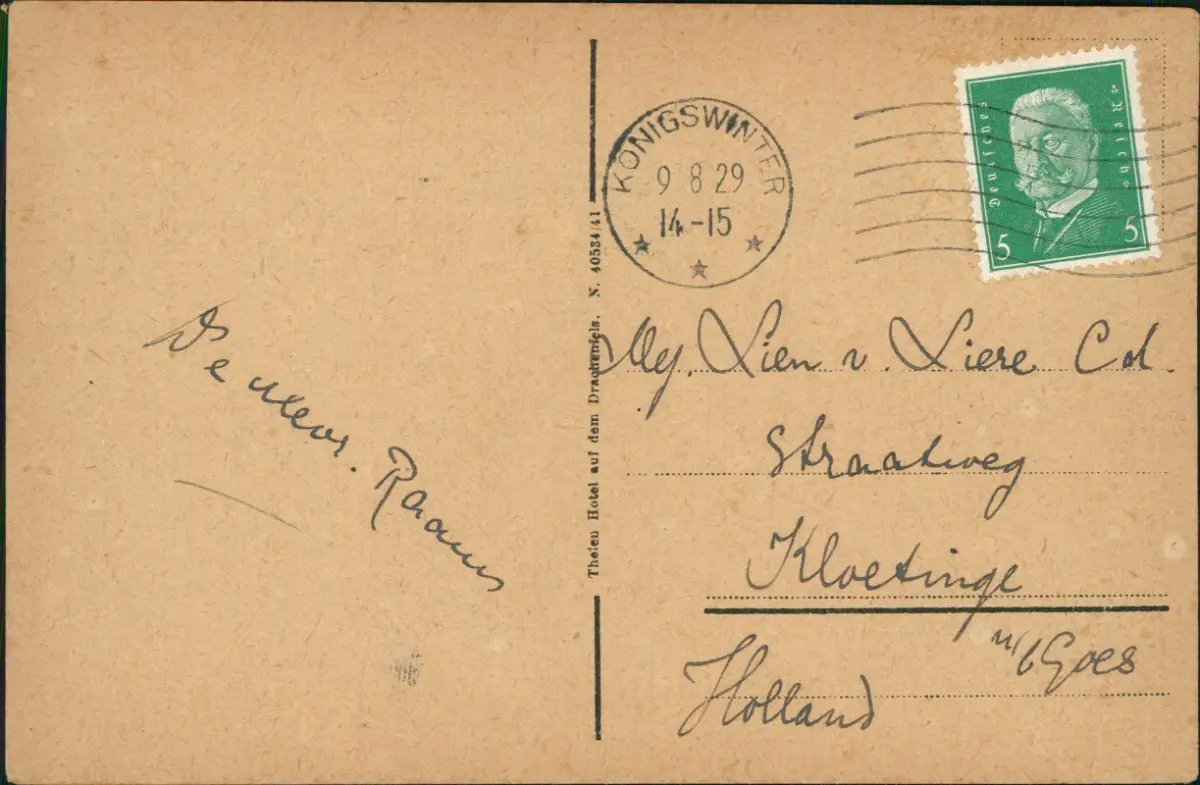 De mevr. Raams
Thelen Hotel auf dem Drachenfels. N. 40534/41
KÖNIGSWINTER
9 8 29
14-15
Deutsches Reich
5 5
Mej. Lien v. Liere Cd.
Straatweg
Kloetinge
n/b Goes
Holland